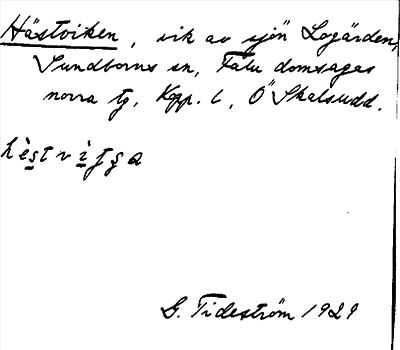 Hästviken, vik av sjön Logärden,
Sundborns sn, Falu domsagas
norra tg, Kpp. 6, Ö Skalsudd.
G. Tideström 1929